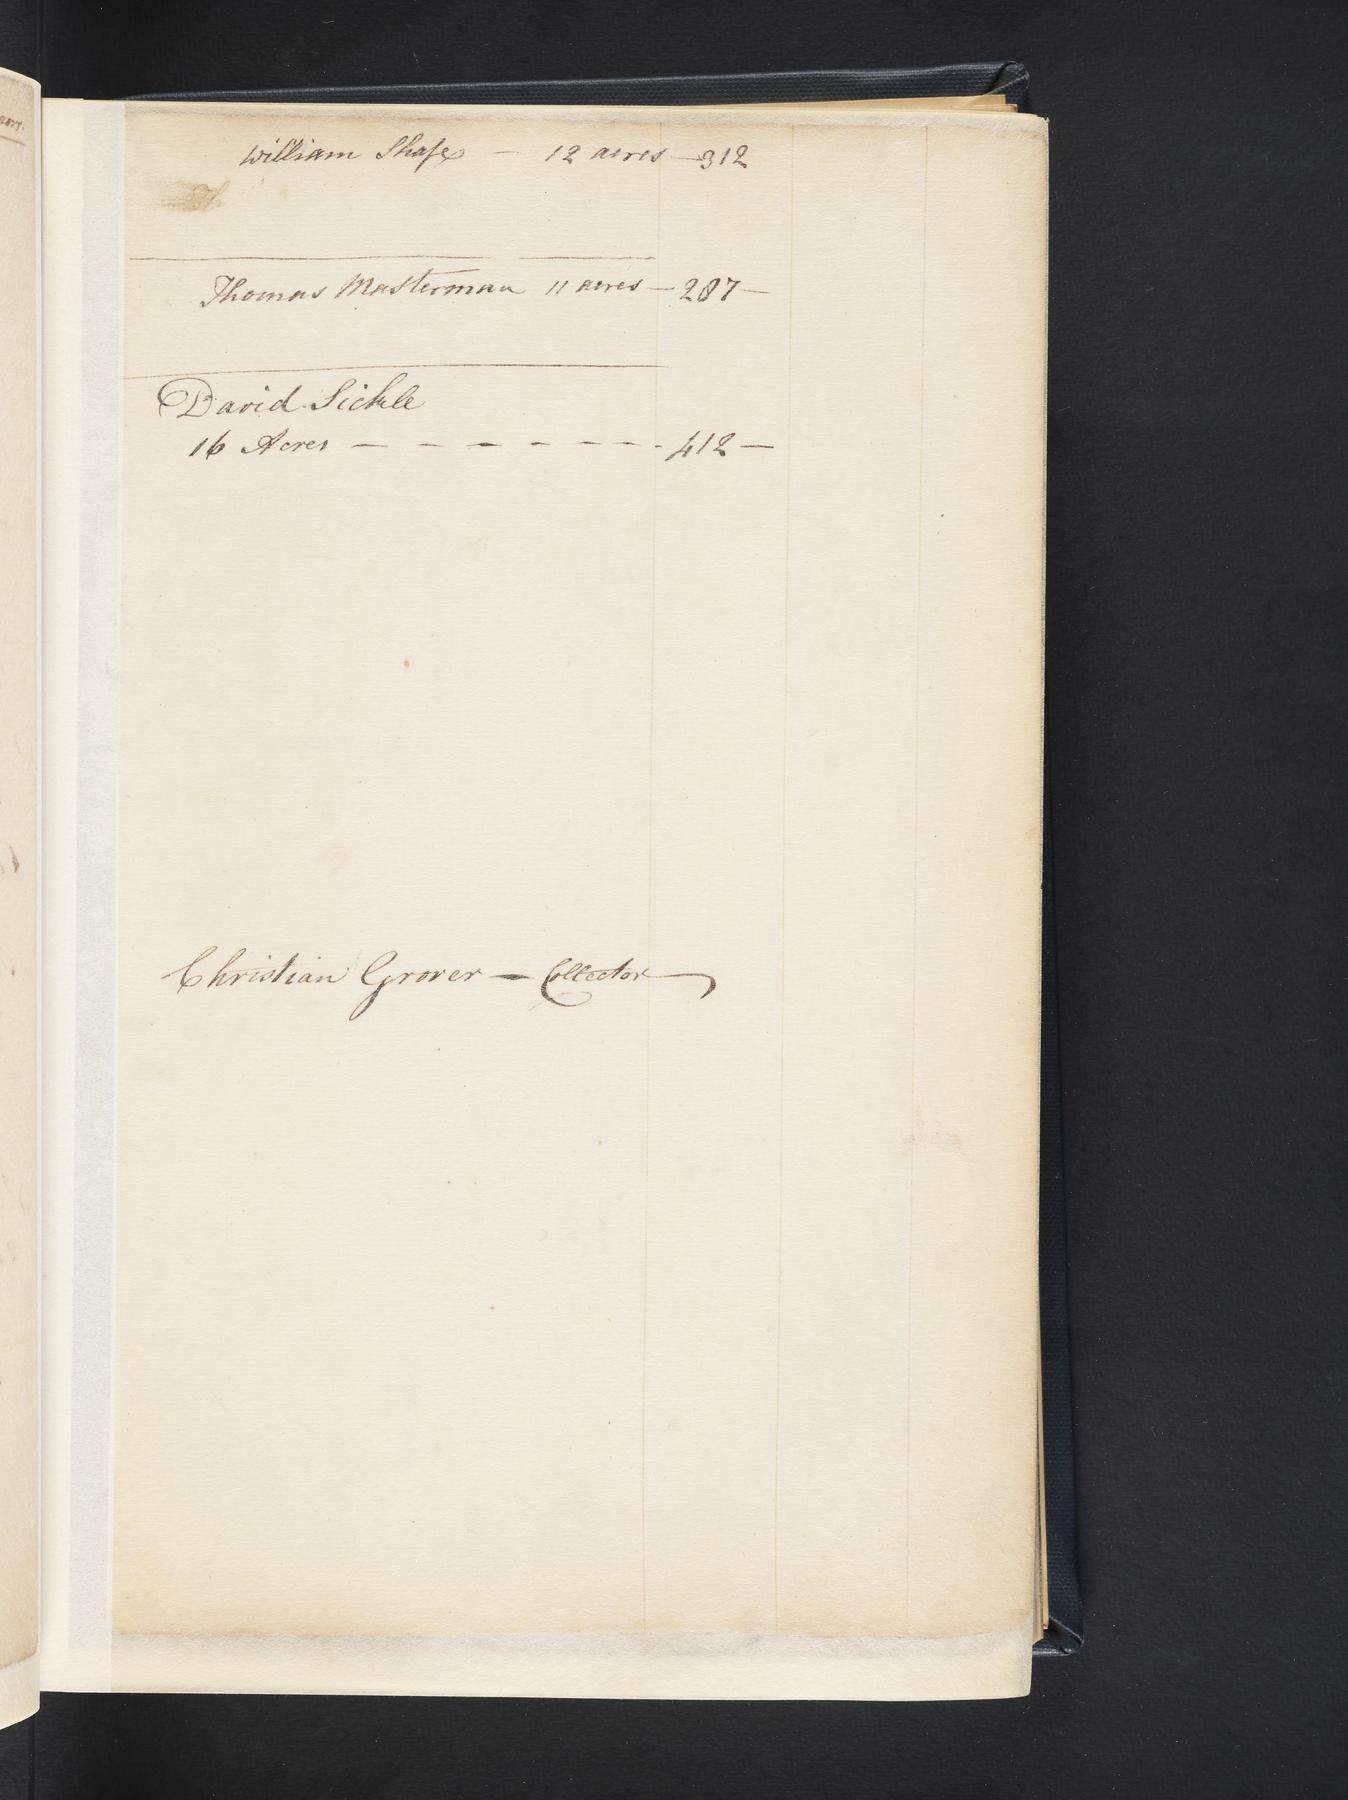 William Shafe — 12 acres — 312
Th
Thomas Masterman 11 acres — 287 —
David Sickle
16 Acres — — — — — — — 412 —
Christian Grover — Collector